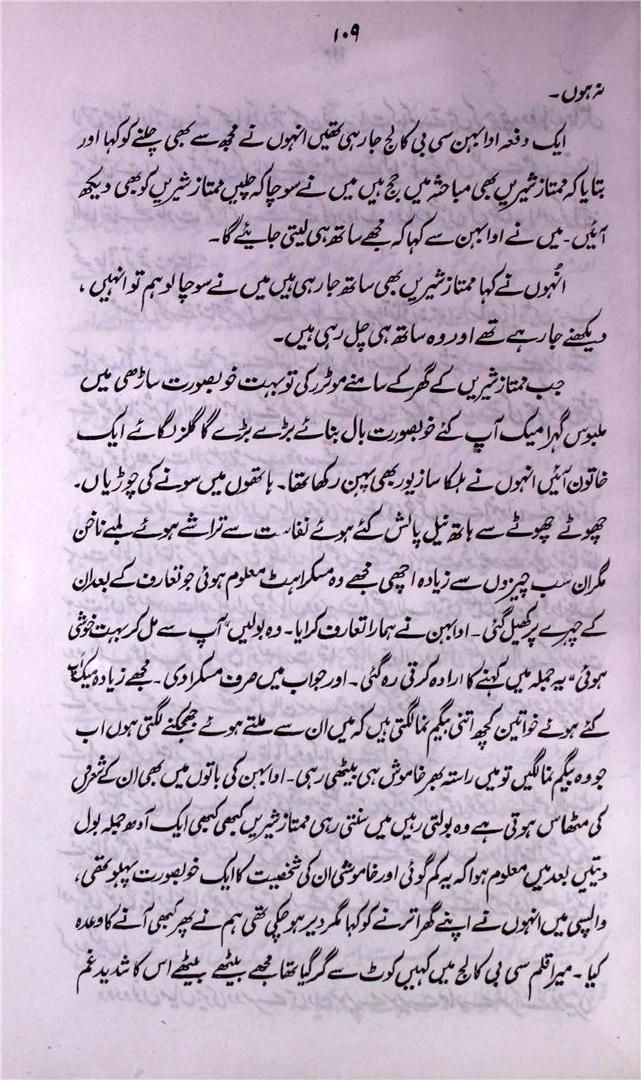 ۱۰۹
نہ ہوں۔
ایک دفعہ ادا بہن سی بی کالج جا رہی تھیں انہوں نے مجھ سے بھی چلنے کو کہا اور
بتایا کہ ممتاز شیریں بھی مباحثہ میں جج ہیں میں نے سوچا کہ چلیں ممتاز شیریں کو بھی دیکھ
آئیں۔ میں نے ادا بہن سے کہا کہ مجھے ساتھ ہی لیتی جایئے گا۔
انہوں نے کہا ممتاز شیریں بھی ساتھ جا رہی ہیں میں نے سوچا لو ہم تو انہیں ،
دیکھنے جا رہے تھے اور وہ ساتھ ہی چل رہی ہیں۔
جب ممتاز شیریں کے گھر کے سامنے موٹر رکی تو بہت خوبصورت ساڑھی میں
ملبوس گہرا میک آپ کئے خوبصورت بال بنائے بڑے بڑے گاگلز لگائے ایک
خاتون آئیں انہوں نے ہلکا سا زیور بھی پہن رکھا تھا۔ ہاتھوں میں سونے کی چوڑیاں۔
چھوٹے چھوٹے سے ہاتھ نیل پالش کئے ہوئے نفاست سے تراشے ہوئے لمبے ناخن
مگر ان سب چیزوں سے زیادہ اچھی مجھے وہ مسکراہٹ معلوم ہوئی جو تعارف کے بعد ان
کے چہرے پر کھیل گئی۔ ادا بہن نے ہمارا تعارف کرایا۔ وہ بولیں "آپ سے مل کر بہت خوشی
ہوئی" یہ جملہ میں کہنے کا ارادہ کرتی رہ گئی۔ اور جواب میں صرف مسکرا دی۔ مجھے زیادہ میک اپ
کئے ہوئے خواتین کچھ اتنی بیگم نما لگتی ہیں کہ میں ان سے ملتے ہوئے جھجکنے لگتی ہوں اب
جو وہ بیگم نما لگیں تو میں راستہ بھر خاموش ہی بیٹھی رہی۔ ادا بہن کی باتوں میں بھی ان کے شعر کی
کی مٹھاس ہوتی ہے وہ بولتی رہیں میں سنتی رہی ممتاز شیریں کبھی کبھی ایک آدھ جملہ بول
دیتیں بعد میں معلوم ہوا کہ یہ کم گوئی اور خاموشی ان کی شخصیت کا ایک خوبصورت پہلو تھی ،
واپسی میں انہوں نے اپنے گھر اترنے کو کہا مگر دیر ہو چکی تھی ہم نے پھر کبھی آنے کا وعدہ
کیا۔ میرا قلم سی بی کالج میں کہیں کوٹ سے گر گیا تھا مجھے بیٹھے بیٹھے اس کا شدید غم